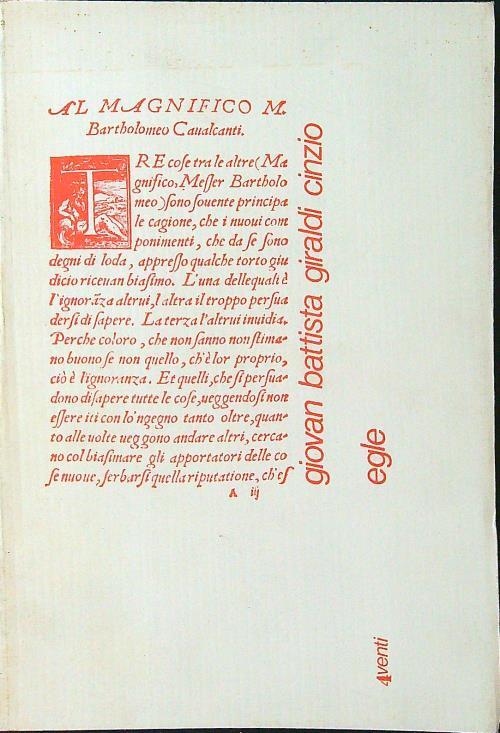 AL MAGNIFICO M.
Bartholomeo Caualcanti.
TRE cose tra le altre (Ma
gnifico, Messer Bartholo
meo) sono souente principa
le cagione, che i nuoui com
ponimenti, che da se sono
degni di loda, appresso qualche torto giu
dicio riceuan biasimo. L'una delle quali è
l'ignorãza altrui, l altra il troppo persua
dersi di sapere. La terza l'altrui inuidia.
Perche coloro, che non sanno non stima-
no buono se non quello, ch'è lor proprio,
ciò è l'ignoranza. Et quelli, che si persua-
dono di sapere tutte le cose, ueggendosi non
essere iti con lo'ngegno tanto oltre, quan-
to alle uolte ueggono andare altri, cerca-
no col biasimare gli apportatori delle co
se nuoue, serbarsi quella riputatione, ch'es
A iij
giovan battista giraldi cinzio
egle
4venti